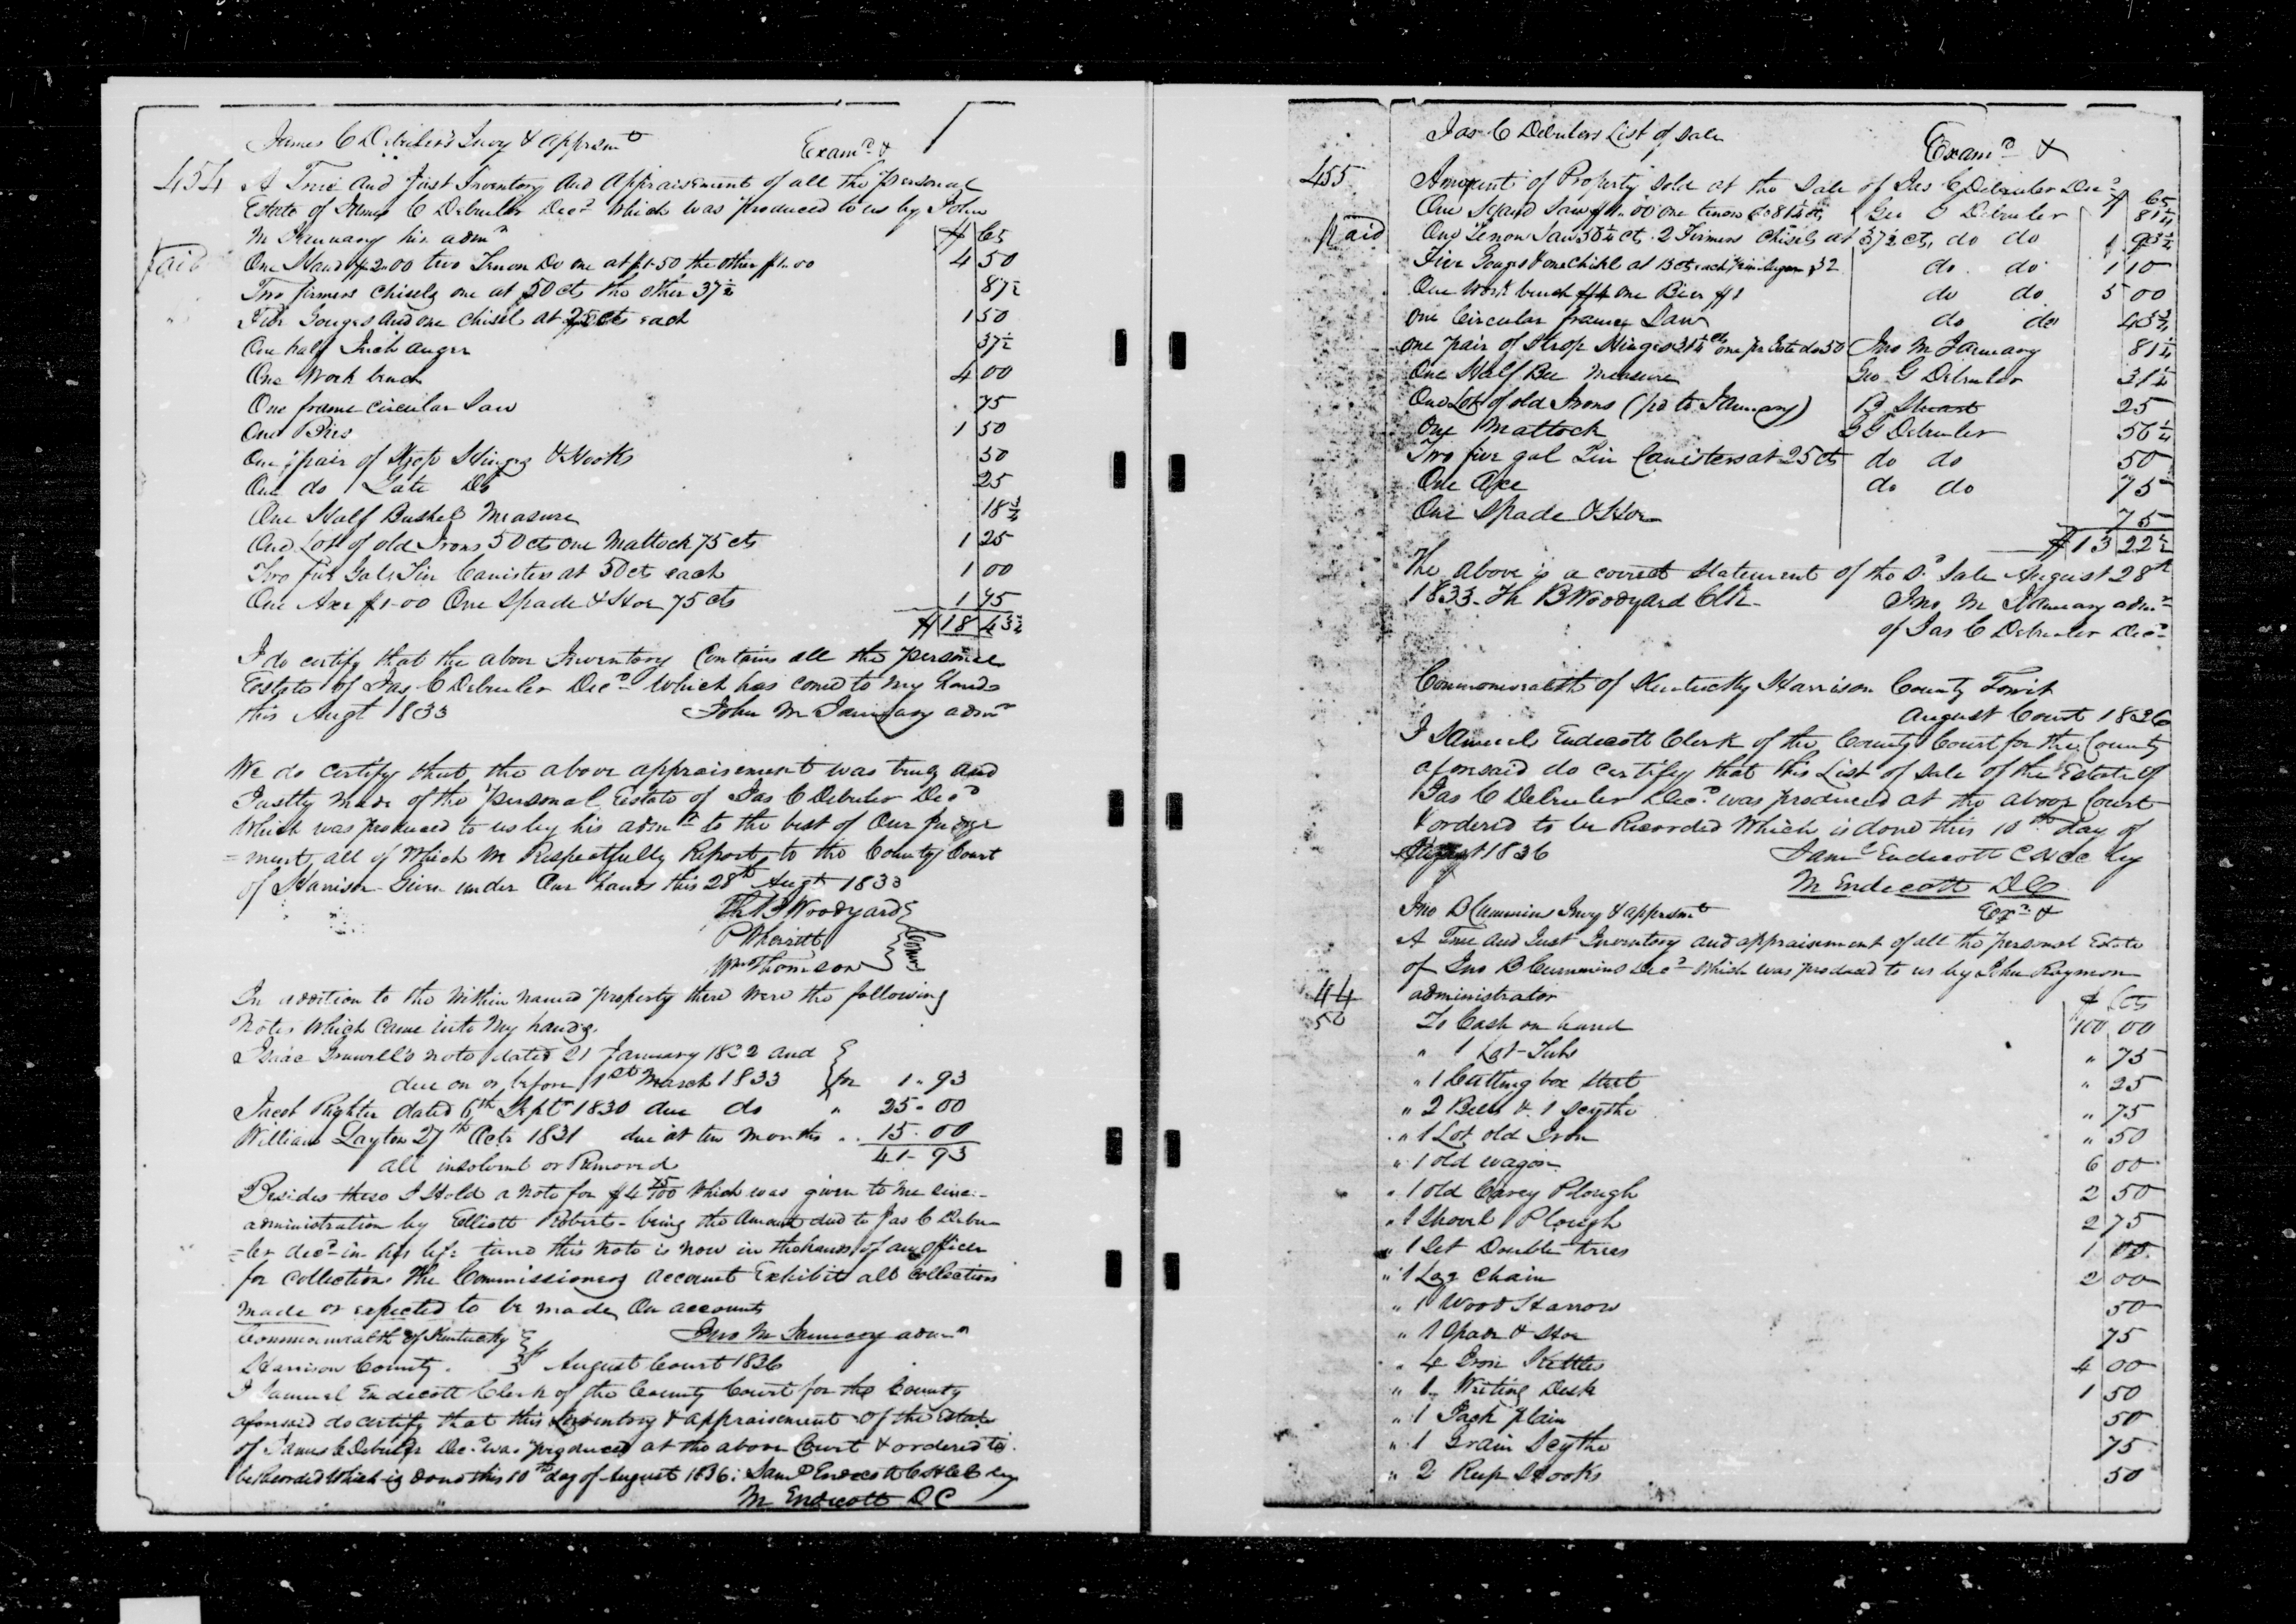 James C Debruler's Invy & Apprsmt
Examd &
454
A True and Just Inventory and Appraisement of all the personal
Estate of James C Debruler Decd which was produced to us by John
M January his admr $ Cts
Paid
One Hand $2.00 two Tenon Do one at $1.50 the other $1.00 4 50
Two firmers chisels one at 50 cts the other 37½ 87½
Five Gouges and one chisel at 25 cts each 1 50
One half Inch auger 37½
One Work bench 4 00
One frame circular Saw 75
One 1 50
One pair of Strop Hinges & Hooks 50
One do Gate Do 25
One Half Bushel Measure 18¾
One Lot of old Irons 50 cts one Mattock 75 cts 1 25
Two five Gals Tin Canisters at 50 cts each 1 00
One Axe $1-00 One Spade & Hoe 75 cts 1 75
$18 43¾
I do certify that the above Inventory Contains all the personal
Estate of Jas C Debruler Decd which has come to my hands
this Augt 1833 John M January admr
We do certify that the above appraisement was truly and
Justly made of the personal Estate of Jas C Debruler Decd
Which was produced to us by his admr to the best of Our Judge
=ment, all of Which We Respectfully Report to the County Court
of Harrison Given under Our hands this 28th Augt 1833
Th B Woodyard
P Wherritt
Wm Thomson
Comrs
In addition to the within named property there were the following
Notes which came into My hands
Isaac note dated 21 January 1832 and
due on or before 1st March 1833 for 1.. 93
Jacob Righter dated 6th Sept 1830 due do " 25-00
William Layton 27th Octr 1831 due at ten months .. 15.00
All insolvent or Removed 41-93
Besides these I Hold a note for $4 75/100 Which was given to me since
administration by Elliott Roberts- being the amount due to Jas C Debru
=ler decd in his life time this note is now in the hands of an officer
for collection. The Commissioners account Exhibit all collections
made or expected to be made, On accounts
Jno M January admr
Commonwealth of Kentucky
Harrison County. Sct August Court 1836
I Samuel Endecott Clerk of the County Court for the County
aforesaid do certify that this Inventory & appraisement of the Estate
of James C Debruler Decd was produced at the above Court & ordered to
be Recorded Which is done this 10th day of August 1836: Saml Endecott C H C C by
M Endecott D C
Jas C Debrulers List of Sale
Examd &
455
Amount of Property sold at the Sale of Jas C Debruler Decd
$ Cts
One Hand Saw $1.00 one tenon do 81¼ cts Geo G Debruler 1 81¼
Paid
One Tenon Saw 56¼ cts. 2 Firmers Chisels at 37½ cts, do do 1 93¾
Five Gouges & one Chisel at 13 cts each ½ in Auger 32 do do 1 10
One Work bench $4 one $1 do do 5 00
One Circular frame Saw do do 43¾
One pair of Strop Hinges 31¼ cts one pr Gate do 50 Jno M January 81¼
One Half Bu Measure Geo G Debruler 31¼
One Lot of old Irons (pd to January) B Stuart 25
One Mattock G G Debruler 56¼
Two five gal Tin Canisters at 25 cts do do 50
One Axe do do 75
One Spade & Hoe 75
$13 22½
The above is a correct Statement of the sd Sale August 28th
1833- Th B Woodyard Clk- Jno M January admr
of Jas C Debruler Decd
Commonwealth of Kentucky Harrison County Towit
August Court 1836
I Samuel Endecott Clerk of the County Court for the County
aforesaid do certify that this List of sale of the Estate of
Jas C Debruler Decd was produced at the above Court
& ordered to be Recorded Which is done this 10th day of
August 1836 Saml Endecott C H C C by
M Endecott D C
Jno B Cummins Invy & apprsmt
Exd &
A True and Just Inventory and appraisement of all the personal Estate
of Jno B Cummins Decd which was produced to us by John Raymon
administrator $ Cts
44
50
To Cash on hand 100 00
" 1 Lot Tubs " 75
" 1 Cutting box Steel " 25
" 2 Bells & 1 Scythe " 75
" 1 Lot old Iron " 50
" 1 old wagon 6 00
" 1 old Carey Plough 2 50
" 1 Shovel Plough 2 75
" 1 Set Double trees 1 00
" 1 Log Chain 2 00
" 1 Wood Harrow 50
" 1 Spade & Hoe 75
" 4 Iron Kettles 4 00
" 1 Writing Desk 1 50
" 1 Jack plain 50
" 1 Grain Scythe 75
" 2 Reap Hooks 50